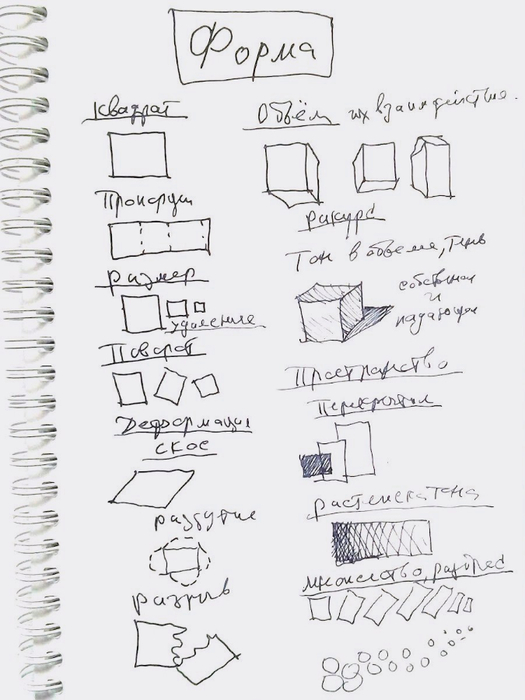 Форма
Квадрат
Пропорции
размер
удаление
Поворот
Деформация
скос
раздутие
разрыв
Объём их взаимодействие.
ракурс
Тон в объеме, тень
собственная
и
падающая
Пространство
Перекрытия
растяжка тона
множество,